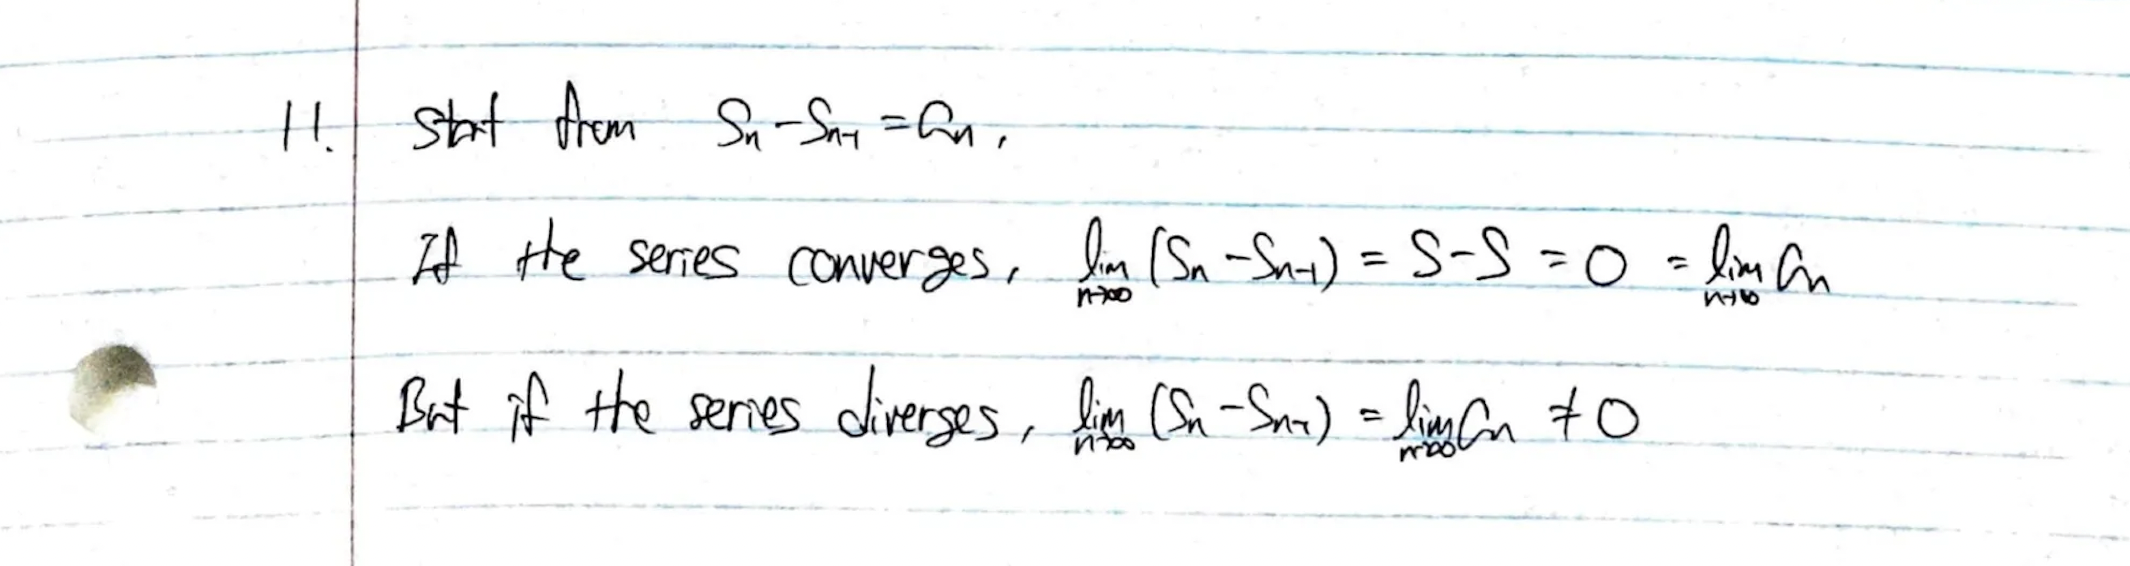 11. Start from Sₙ - Sₙ₋₁ = aₙ,
If the series converges, lim n→∞ (Sₙ - Sₙ₋₁) = S - S = 0 = lim n→∞ aₙ
But if the series diverges, lim n→∞ (Sₙ - Sₙ₋₁) = lim n→∞ aₙ ≠ 0